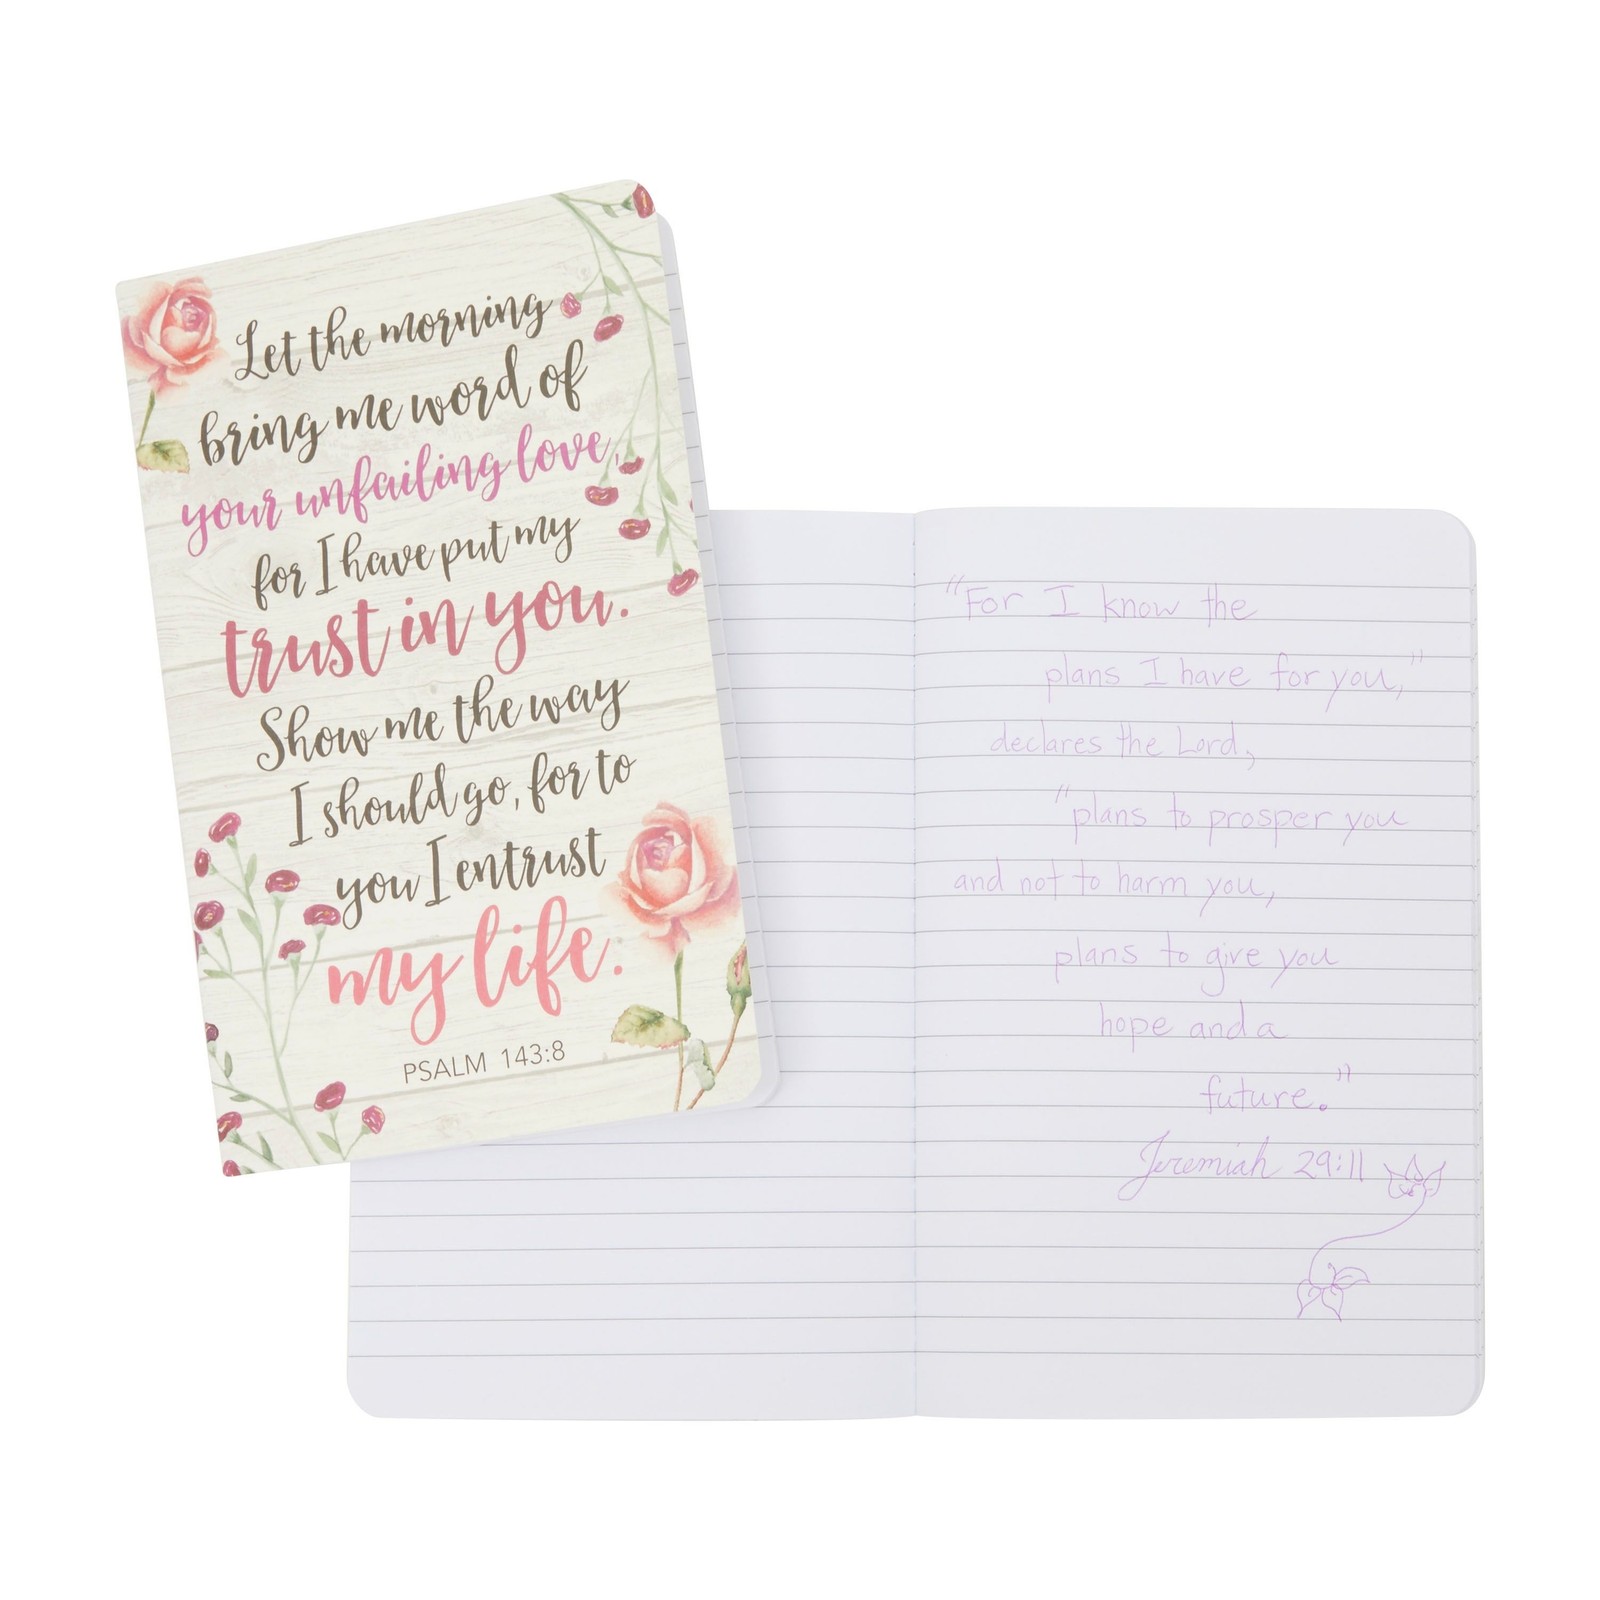 Let the morning
bring me word of
your unfailing love,
for I have put my
trust in you.
Show me the way
I should go, for to
you I entrust
my life.
PSALM 143:8
"For I know the
plans I have for you,"
declares the Lord,
"plans to prosper you
and not to harm you,
plans to give you
hope and a
future."
Jeremiah 29:11